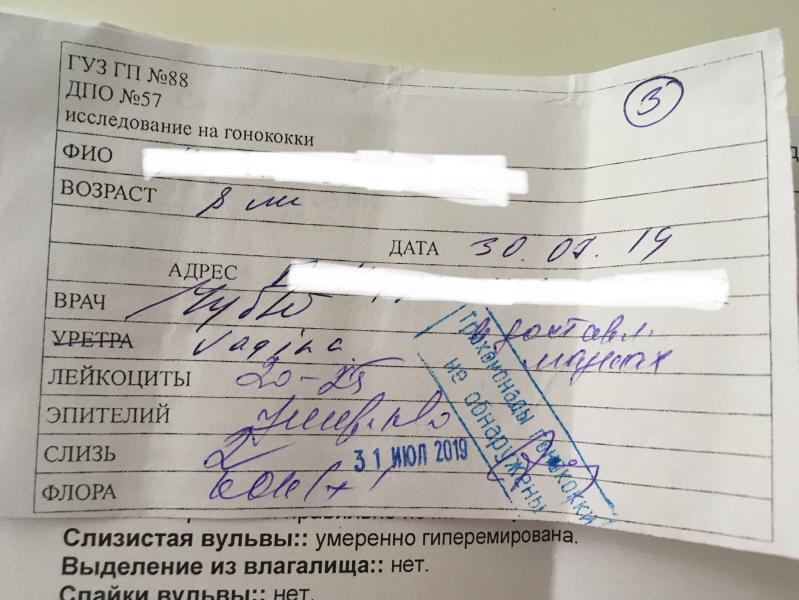 ГУЗ ГП №88
3
ДПО №57
исследование на гонококки
ФИО
ВОЗРАСТ 8
ДАТА 30.07.19
АДРЕС
ВРАЧ
УРЕТРА Vagina
в доставл.
мазках
ЛЕЙКОЦИТЫ 20-25
ЭПИТЕЛИЙ
СЛИЗЬ
ФЛОРА
31 ИЮЛ 2019
Трихомонады гонококки
не обнаружены
Слизистая вульвы:: умеренно гиперемирована.
Выделение из влагалища:: нет.
Спайки вульвы:: нет.